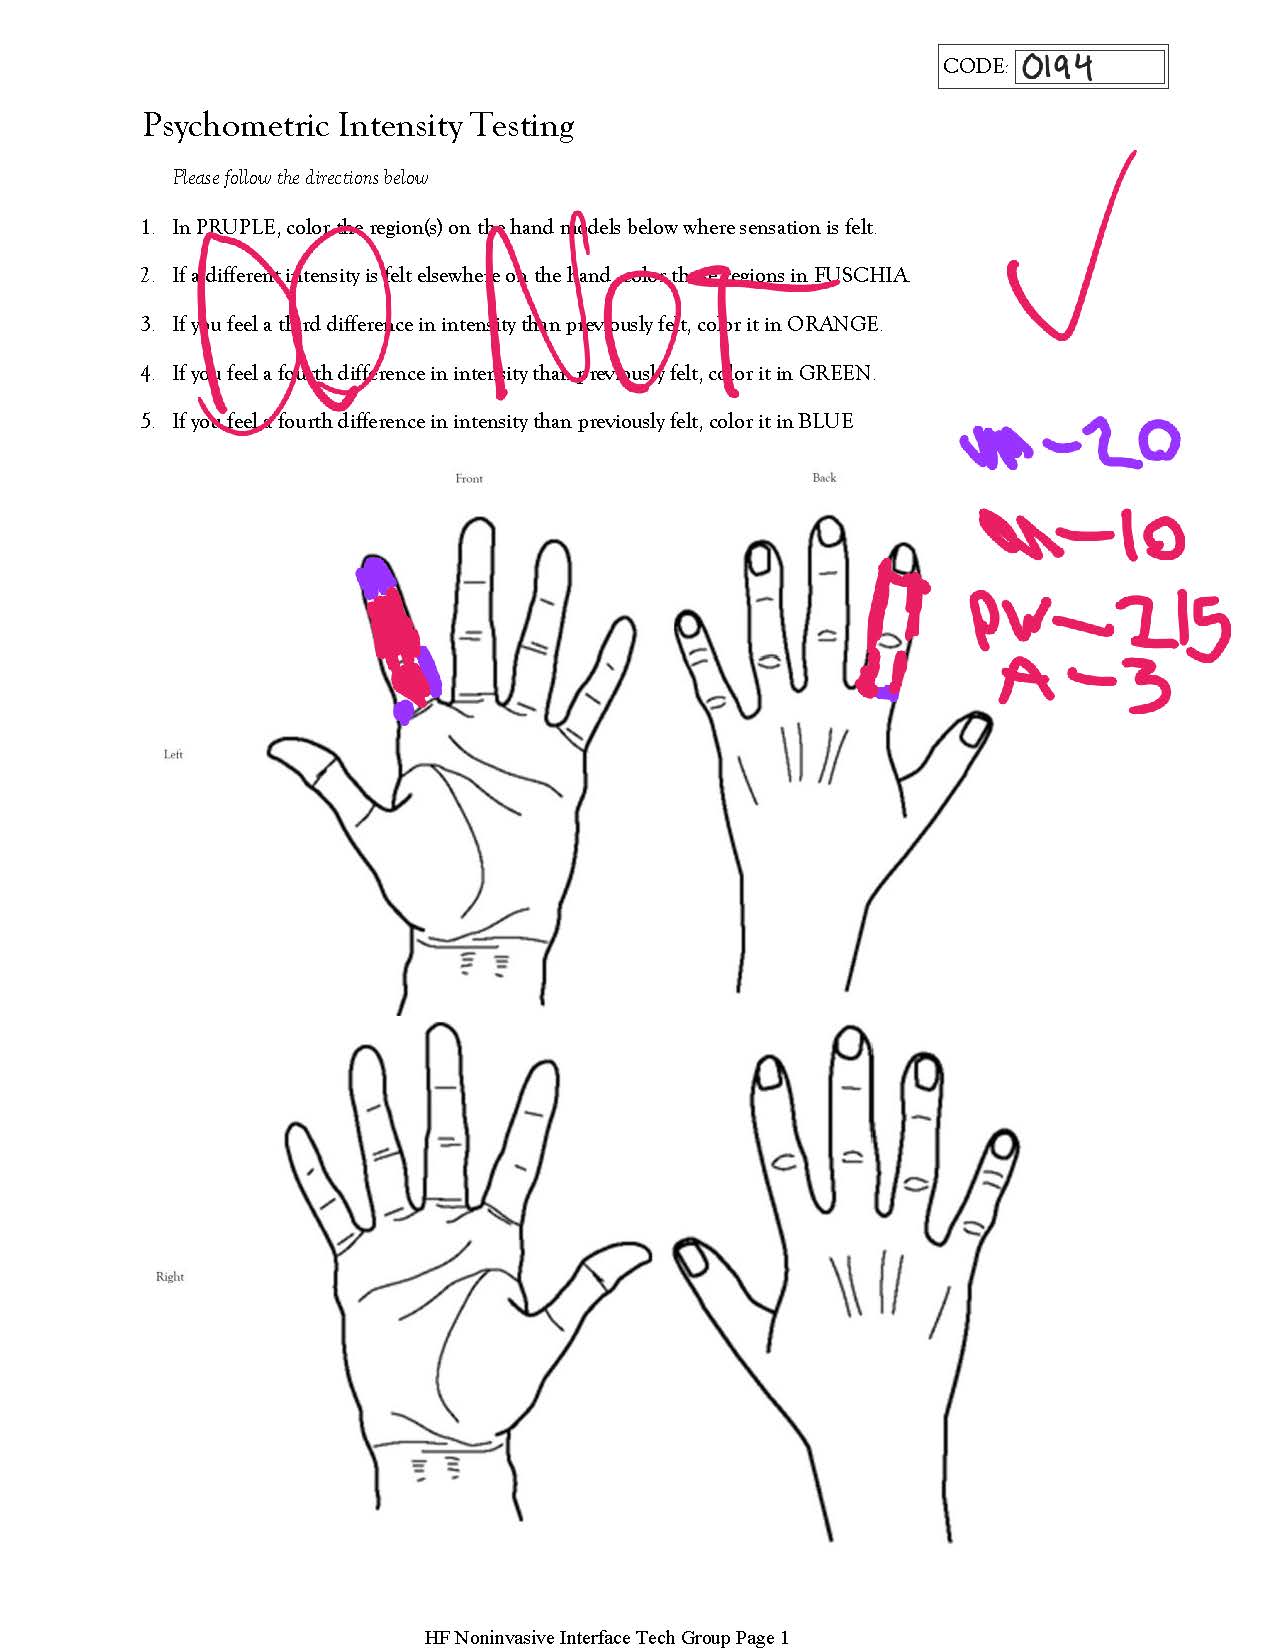 CODE: 0194
Psychometric Intensity Testing
Please follow the directions below
1. In PRUPLE, color the region(s) on the hand models below where sensation is felt.
2. If a different intensity is felt elsewhere on the hand, color those regions in FUSCHIA.
3. If you feel a third difference in intensity than previously felt, color it in ORANGE.
4. If you feel a fourth difference in intensity than previously felt, color it in GREEN.
5. If you feel a fourth difference in intensity than previously felt, color it in BLUE
DO NOT
-20
Front Back
-10
PW-215
A-3
Left
Right
HF Noninvasive Interface Tech Group Page 1